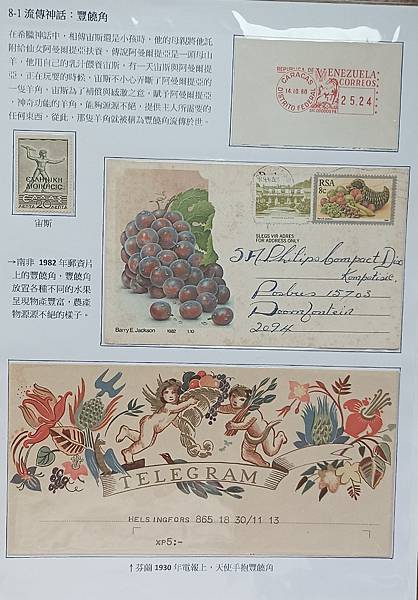 8-1 流傳神話：豐饒角
在希臘神話中，相傳宙斯還是小孩時，他的母親將他託
附給仙女阿曼爾提亞扶養，傳說阿曼爾提亞是一頭母山
羊，他用自己的乳汁餵養宙斯，有一天宙斯與阿曼爾提
亞，正在玩耍的時候，宙斯不小心弄斷了阿曼爾提亞的
一隻羊角，宙斯為了補償與感激之意，賦予阿曼爾提亞
，神奇功能的羊角，能夠源源不絕，提供主人所需要的
任何東西，從此，那隻羊角就被稱為豐饒角流傳於世。
REPUBLICA DE VENEZUELA
CORREOS
CARACAS
14.10.80
DISTRITO FEDERAL
25.24
ΕΛΛΗΝΙΚΗ
ΔΙΟΙΚΗΣΙΣ
ΕΛΛΑΣ
ΛΕΠΤΑ 20 ΛΕΠΤΑ
宙斯
→南非 1982 年郵資片
上的豐饒角，豐饒角
放置各種不同的水果
呈現物產豐富，農產
物源源不絕的樣子。
RSA
8c
SLEGS VIR ADRES
FOR ADDRESS ONLY
SA Philips Compact Disc
Kompetisie,
Posbus 15703
Doornfontein
2094
Barry E. Jackson 1982 1.10
TELEGRAM
HELSINGFORS 865 18 30/11 13
XP5:-
↑芬蘭 1930 年電報上，天使手抱豐饒角